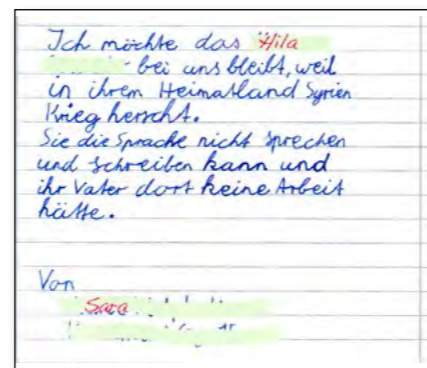 Ich möchte das Hila
bei uns bleibt, weil
in ihrem Heimatland Syrien
Krieg herscht.
Sie die Sprache nicht sprechen
und schreiben kann und
ihr Vater dort keine Arbeit
hätte.
Von
Sara